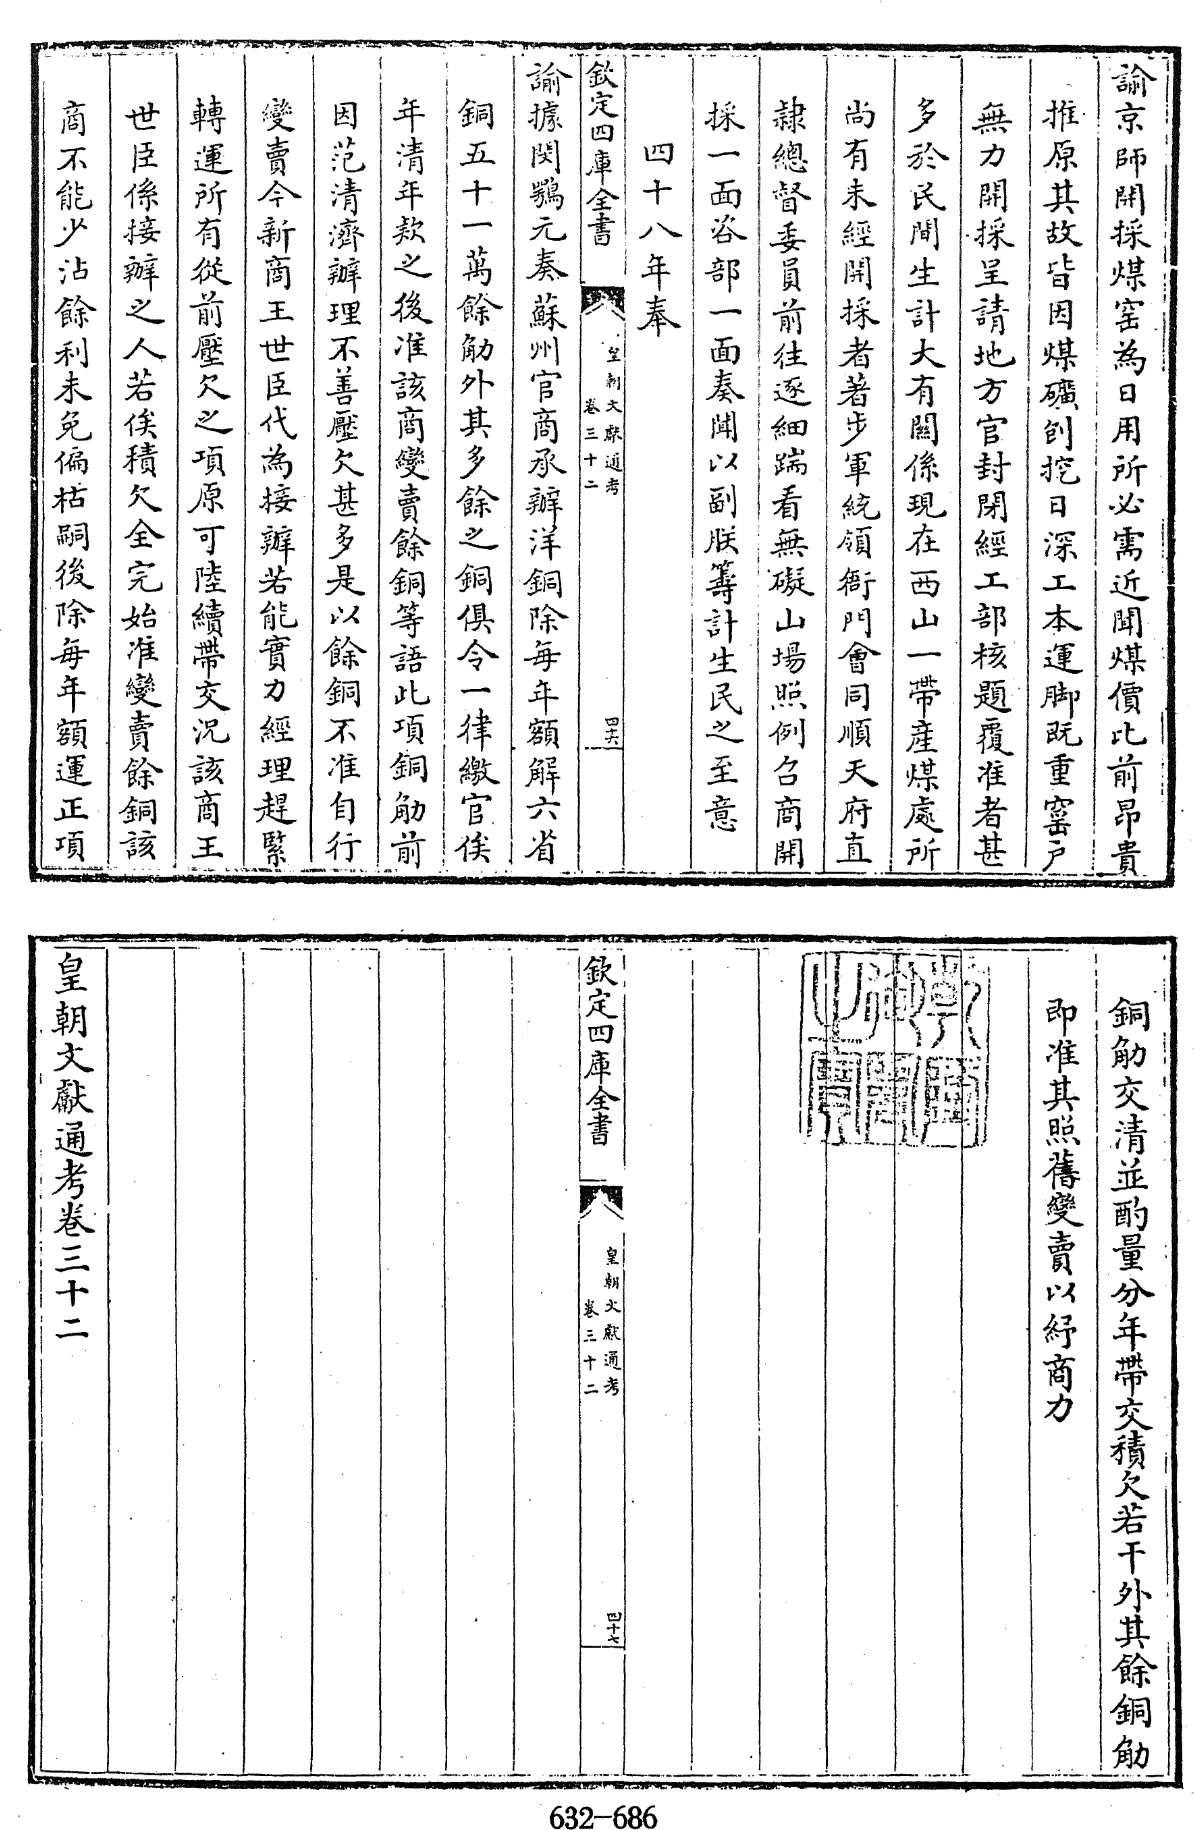 諭京師開採煤窑為日用所必需近聞煤價比前昂貴
推原其故皆因煤礦刨挖日深工本運脚既重窰戶
無力開採呈請地方官封閉經工部核題覆准者甚
多於民間生計大有關係現在西山一帶產煤處所
尚有未經開採者著步軍統領衙門會同順天府直
隷總督委員前往逐細踹看無礙山場照例召商開
採一面咨部一面奏聞以副朕籌計生民之至意
四十八年奉
欽定四庫全書
皇朝文獻通考
卷三十二
四十六
諭據閔鶚元奏蘇州官商承辦洋銅除每年額解六省
銅五十一萬餘觔外其多餘之銅俱令一律繳官俟
年清年款之後准該商變賣餘銅等語此項銅觔前
因范清濟辦理不善壓欠甚多是以餘銅不准自行
變賣今新商王世臣代為接辦若能實力經理趕緊
轉運所有從前壓欠之項原可陸續帶交況該商王
世臣係接辦之人若俟積欠全完始准變賣餘銅該
商不能少沾餘利未免偏枯嗣後除每年額運正項
銅觔交清並酌量分年帶交積欠若干外其餘銅觔
即准其照舊變賣以紓商力
欽定四庫全書
皇朝文獻通考
卷三十二
四十七
皇朝文獻通考卷三十二
632-686